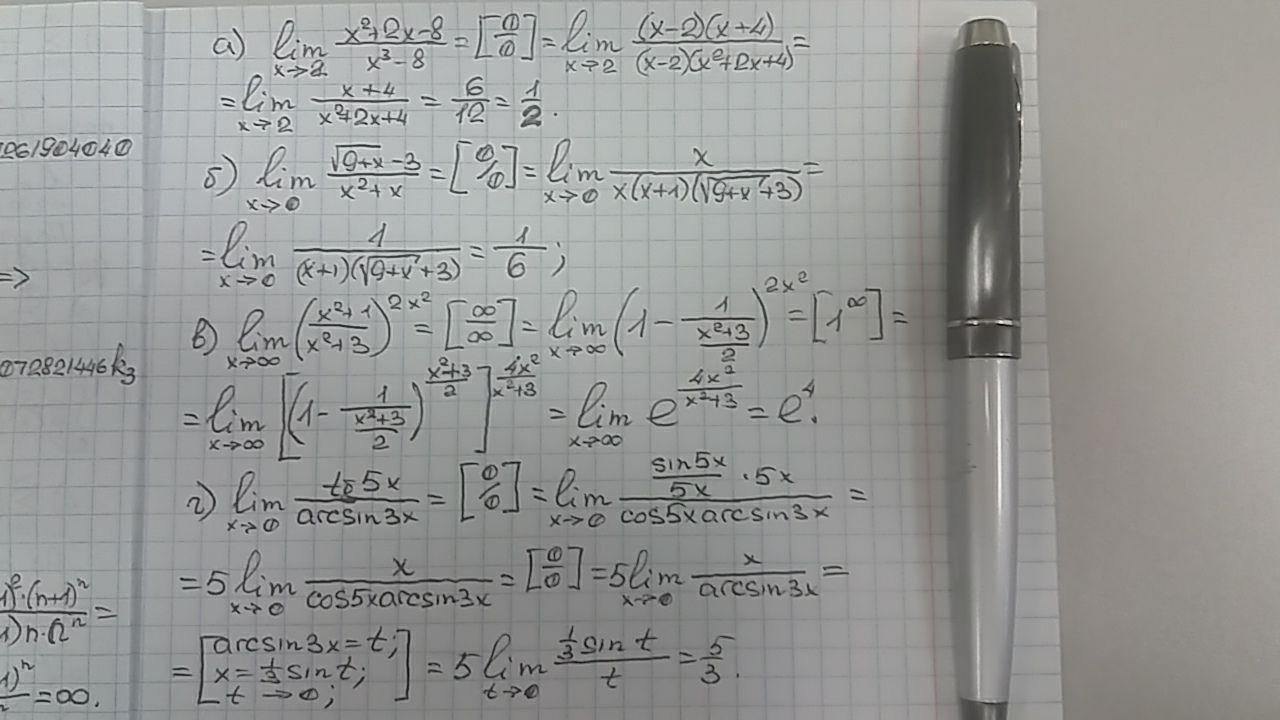 a) lim x→2 (x²+2x-8)/(x³-8) = [0/0] = lim x→2 ((x-2)(x+4))/((x-2)(x²+2x+4)) =
= lim x→2 (x+4)/(x²+2x+4) = 6/12 = 1/2.
б) lim x→0 (√(9+x)-3)/(x²+x) = [0/0] = lim x→0 x/(x(x+1)(√(9+x)+3)) =
= lim x→0 1/((x+1)(√(9+x)+3)) = 1/6;
в) lim x→∞ ((x²+1)/(x²+3))^(2x²) = [∞/∞] = lim x→∞ (1 - 1/((x²+3)/2))^(2x²) = [1^∞] =
= lim x→∞ [(1 - 1/((x²+3)/2))^((x²+3)/2)]^(4x²/(x²+3)) = lim x→∞ e^(4x²/(x²+3)) = e⁴.
г) lim x→0 (tg 5x)/(arcsin3x) = [0/0] = lim x→0 ((sin5x)/(5x) · 5x)/(cos5x arcsin3x) =
= 5 lim x→0 x/(cos5x arcsin3x) = [0/0] = 5 lim x→0 x/(arcsin3x) =
= [arcsin3x = t; x = 1/3 sin t; t → 0;] = 5 lim t→0 (1/3 sin t)/t = 5/3.
261904040
=>
072821446k₃
·(n+1)ⁿ =
= ∞.